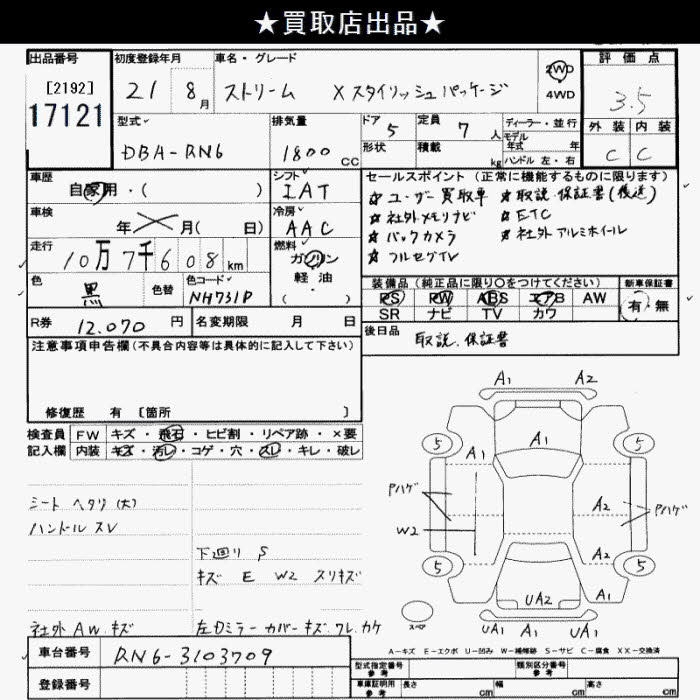 ★買取店出品★
出品番号
[2192]
17121
初度登録年月
21 8月
車名・グレード
ストリーム X スタイリッシュパッケージ
2WD
4WD
評価点
3.5
外装 内装
C C
型式
DBA-RN6
排気量
1800 CC
ドア 5
形状
定員 7 人
積載 kg
ディーラー・並行
モデル
年式 年
ハンドル 左・右
車歴
自家用・( )
シフト
IAT
車検
年 月( 日)
冷房
AAC
走行
10万7千608km
燃料
ガソリン
軽油
( )
色
黒
色替
色コード
NH731P
R券 12.070 円
名変期限 月 日
セールスポイント(正常に機能するものに限ります)
☆ユーザー買取車 ☆取説.保証書(後送)
☆社外メモリナビ ☆ETC
☆バックカメラ ☆社外アルミホイール
☆フルセグTV
装備品(純正品に限り○をつけてください)
PS PW ABS エアB AW
SR ナビ TV カワ
新車保証書
有・無
後日品 取説.保証書
注意事項申告欄(不具合内容等は具体的に記入して下さい)
修復歴 有 [箇所 ]
検査員
記入欄
FW キズ・飛石・ヒビ割・リペア跡・×要
内装 キズ・汚レ・コゲ・穴・スレ・キレ・破レ
シート ヘタリ(大)
ハンドル スレ
下廻り S
キズ E W2 スリキズ
社外AW キズ
左Dミラーカバーキズ.ワレ.カケ
A1 A2
5 5
A1 A1
Pハゲ A2 Pハゲ
W2
A2
5 5
UA2 A1
スペア
UA1 A1 UA1
A-キズ E-エクボ U-凹み W-補修跡 S-サビ C-腐食 XX-交換済
車台番号 RN6-3103709
登録番号
型式指定番号
参考
類別区分番号
参考
車庫証明用
参考
長さ cm 幅 cm 高さ cm